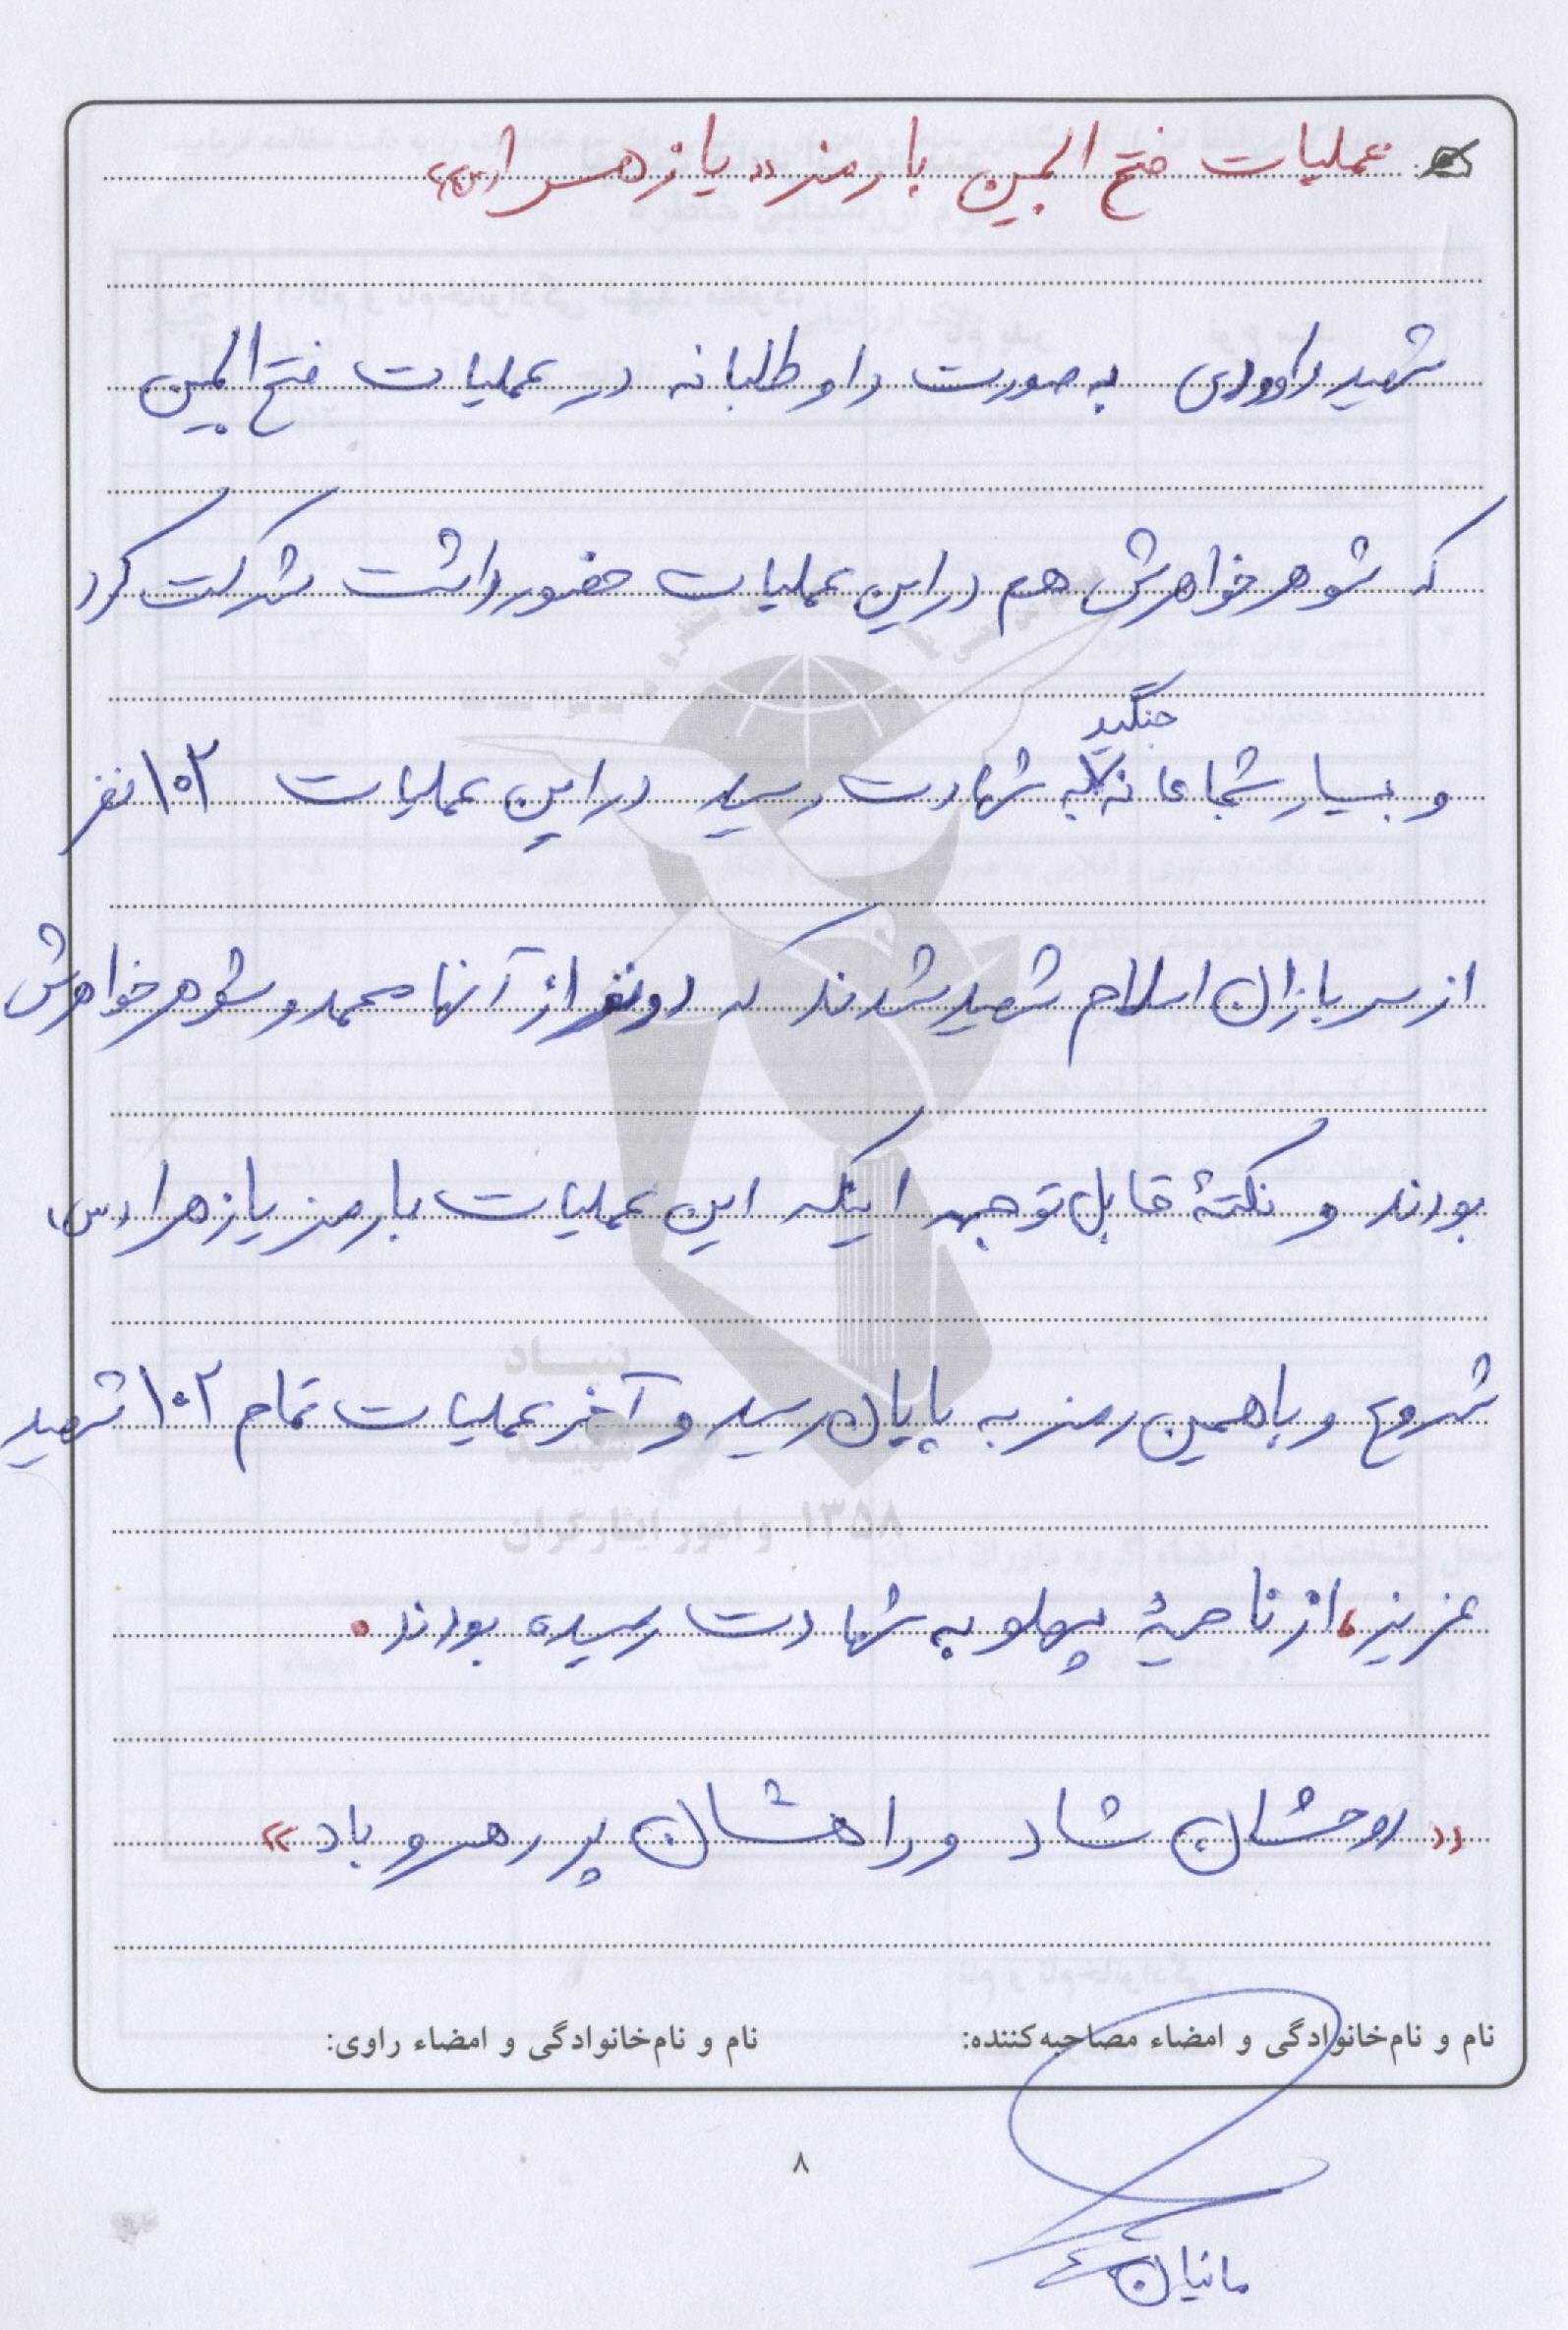 عملیات فتح المبین با رمز «یا زهرا(س)»
شهید داوودی به صورت داوطلبانه در عملیات فتح المبین
که شوهر خواهرش هم در این عملیات حضور داشت شرکت کرد
جنگید
و بسیار شجاعانه به شهادت رسید در این عملیات ۱۰۲ نفر
از سربازان اسلام شهید شدند که دو نفر از آنها محمد و شوهر خواهرش
بودند و نکتهٔ قابل توجه اینکه این عملیات با رمز یا زهرا (س)
شروع و با همین رمز به پایان رسید و آخر عملیات تمام ۱۰۲ شهید
عزیز، از ناحیهٔ پهلو به شهادت رسیده بودند.
«روحشان شاد و راهشان پر رهرو باد»
نام و نام‌خانوادگی و امضاء مصاحبه‌کننده: نام و نام‌خانوادگی و امضاء راوی:
۸
بنیاد
شهید
و امور ایثارگران ۱۳۵۸